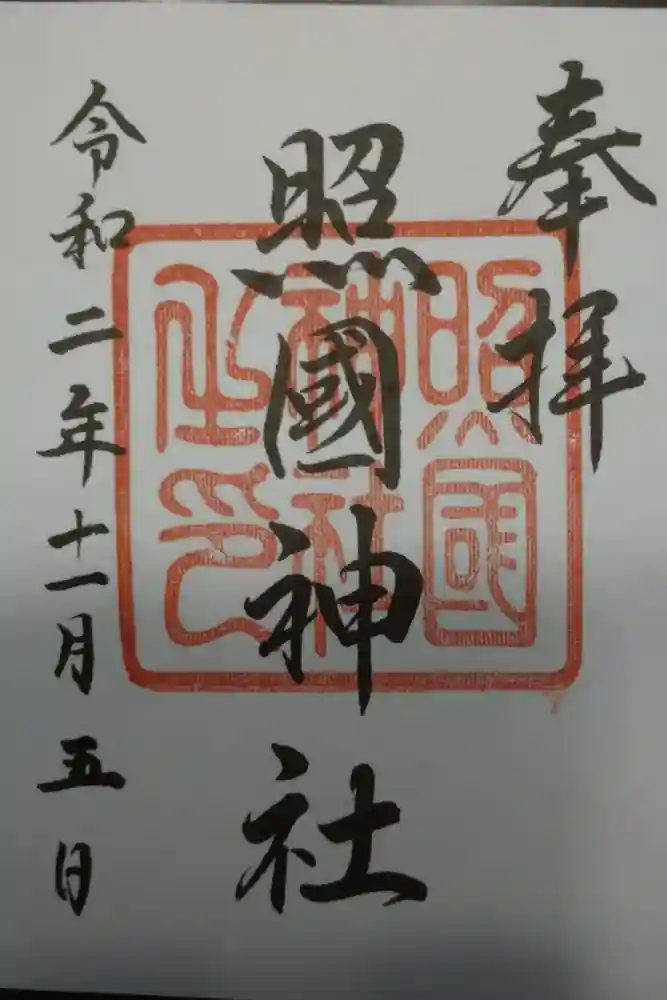 奉拝
照國神社
照國神社之印
令和二年十一月五日